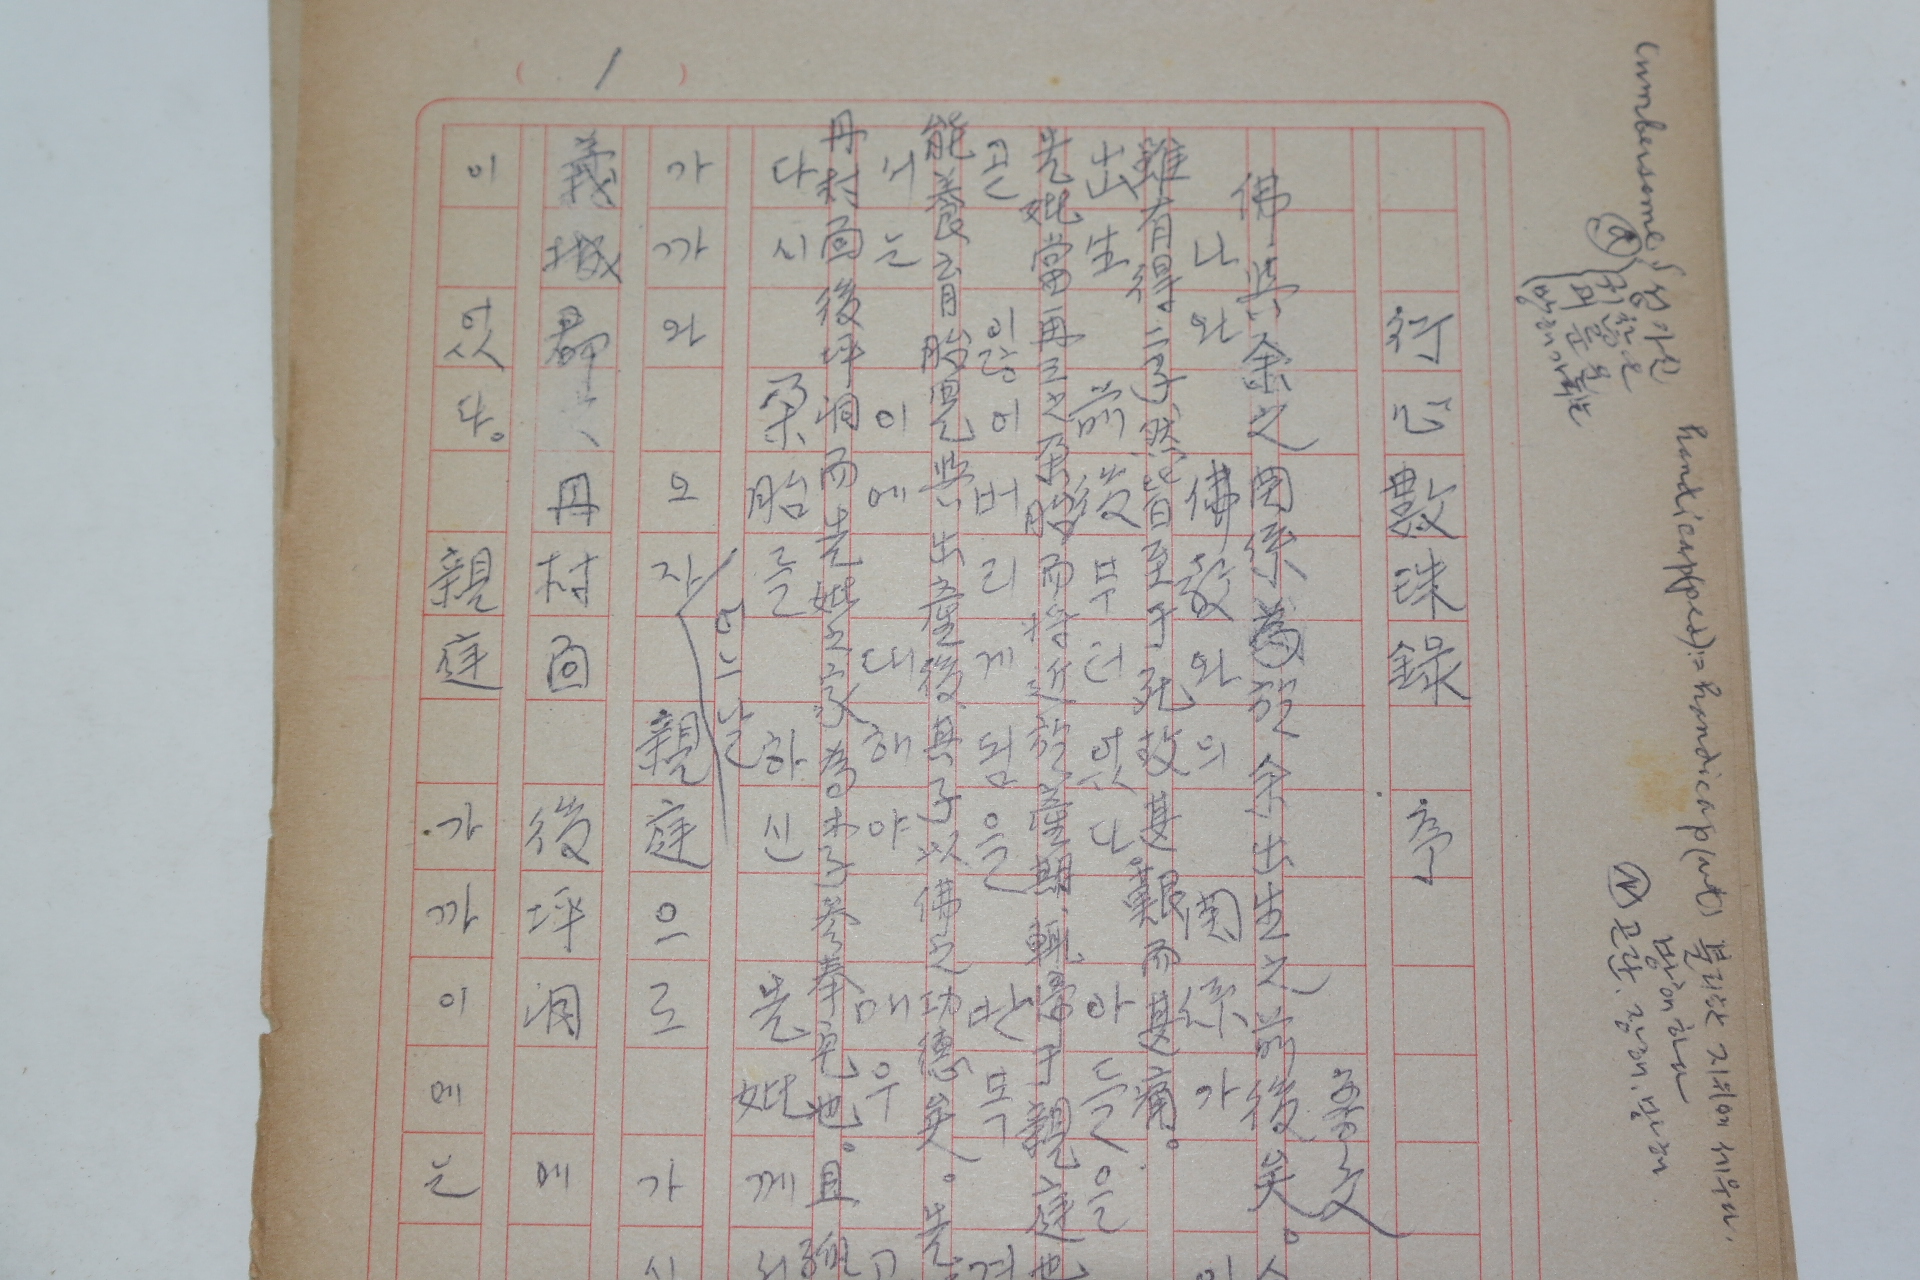 cumbersome 성가신
Ⓐ 귀찮은
handicapped := handicap(wt) 불리한 지위에 세우다.
방해하다
Ⓝ 곤란, 장해, 방해
行心數珠錄 序
文
佛與余之関係 於余出生之前後矣。
나와 佛敎와의 関係가
雖有得二子然皆至于死故甚艱而甚痛。
出生前後부터였다. 아들을
先妣當再三之孕胎而將近於產期 于親庭也
곧 잃어버리게됨을 반목
能養育胎兒與出產後其子以佛之功德矣。先
는이에 대해야 매우 고
丹村面後坪洞而先妣之家為 奉宅也。且
다시 孕胎를 하신 先妣께서
어느날
가까와오자 親庭으로 가시
義城郡、丹村面 後坪洞에
이 었다. 親庭 가까이에는